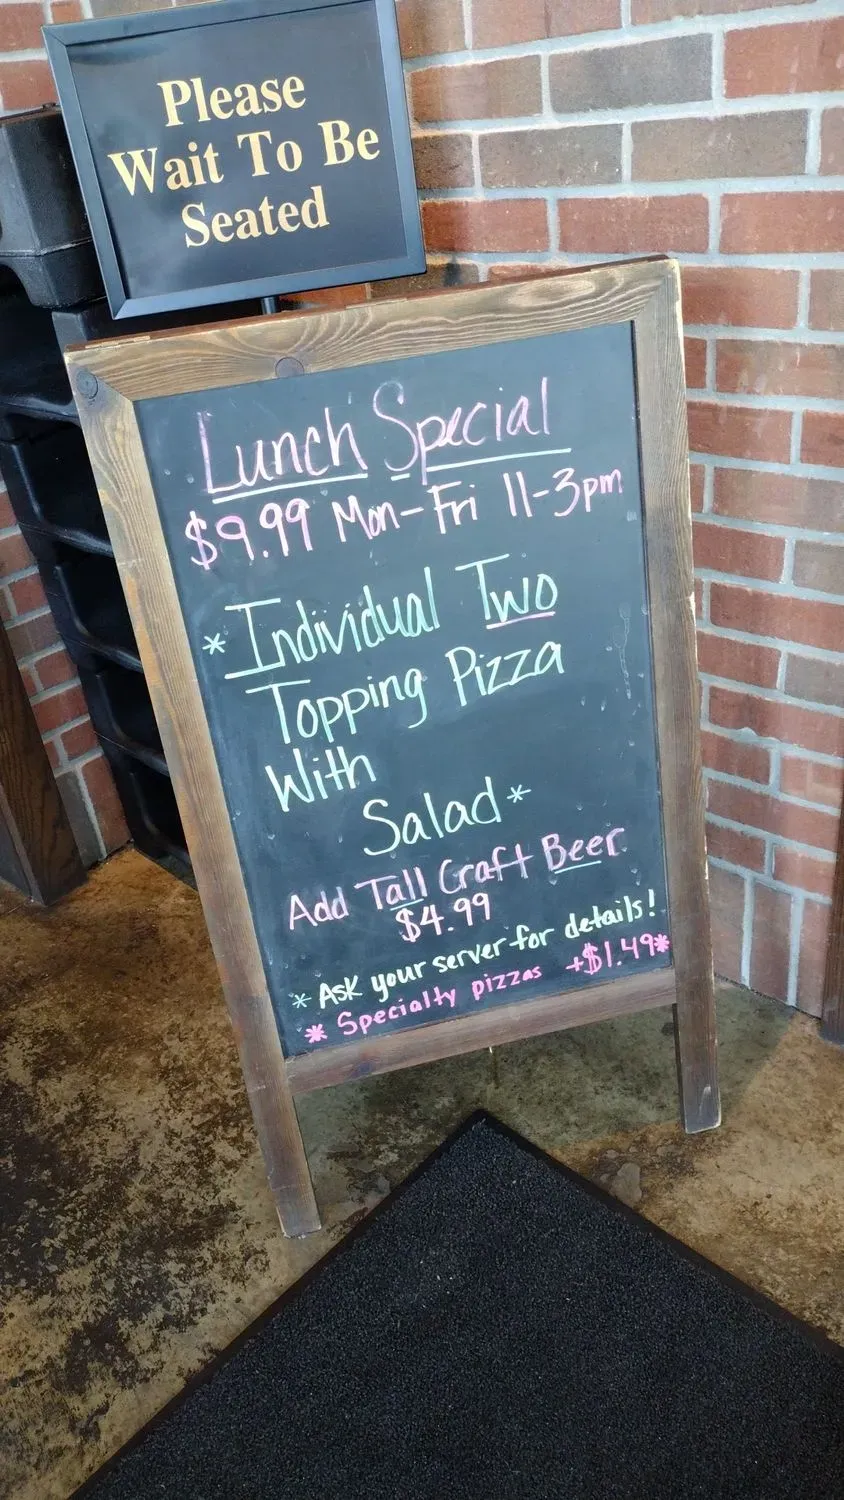 Please
Wait To Be
Seated
Lunch Special
$9.99 Mon-Fri 11-3pm
*Individual Two
Topping Pizza
With
Salad*
Add Tall Craft Beer
$4.99
*Ask your server for details!
*Specialty pizzas +$1.49*